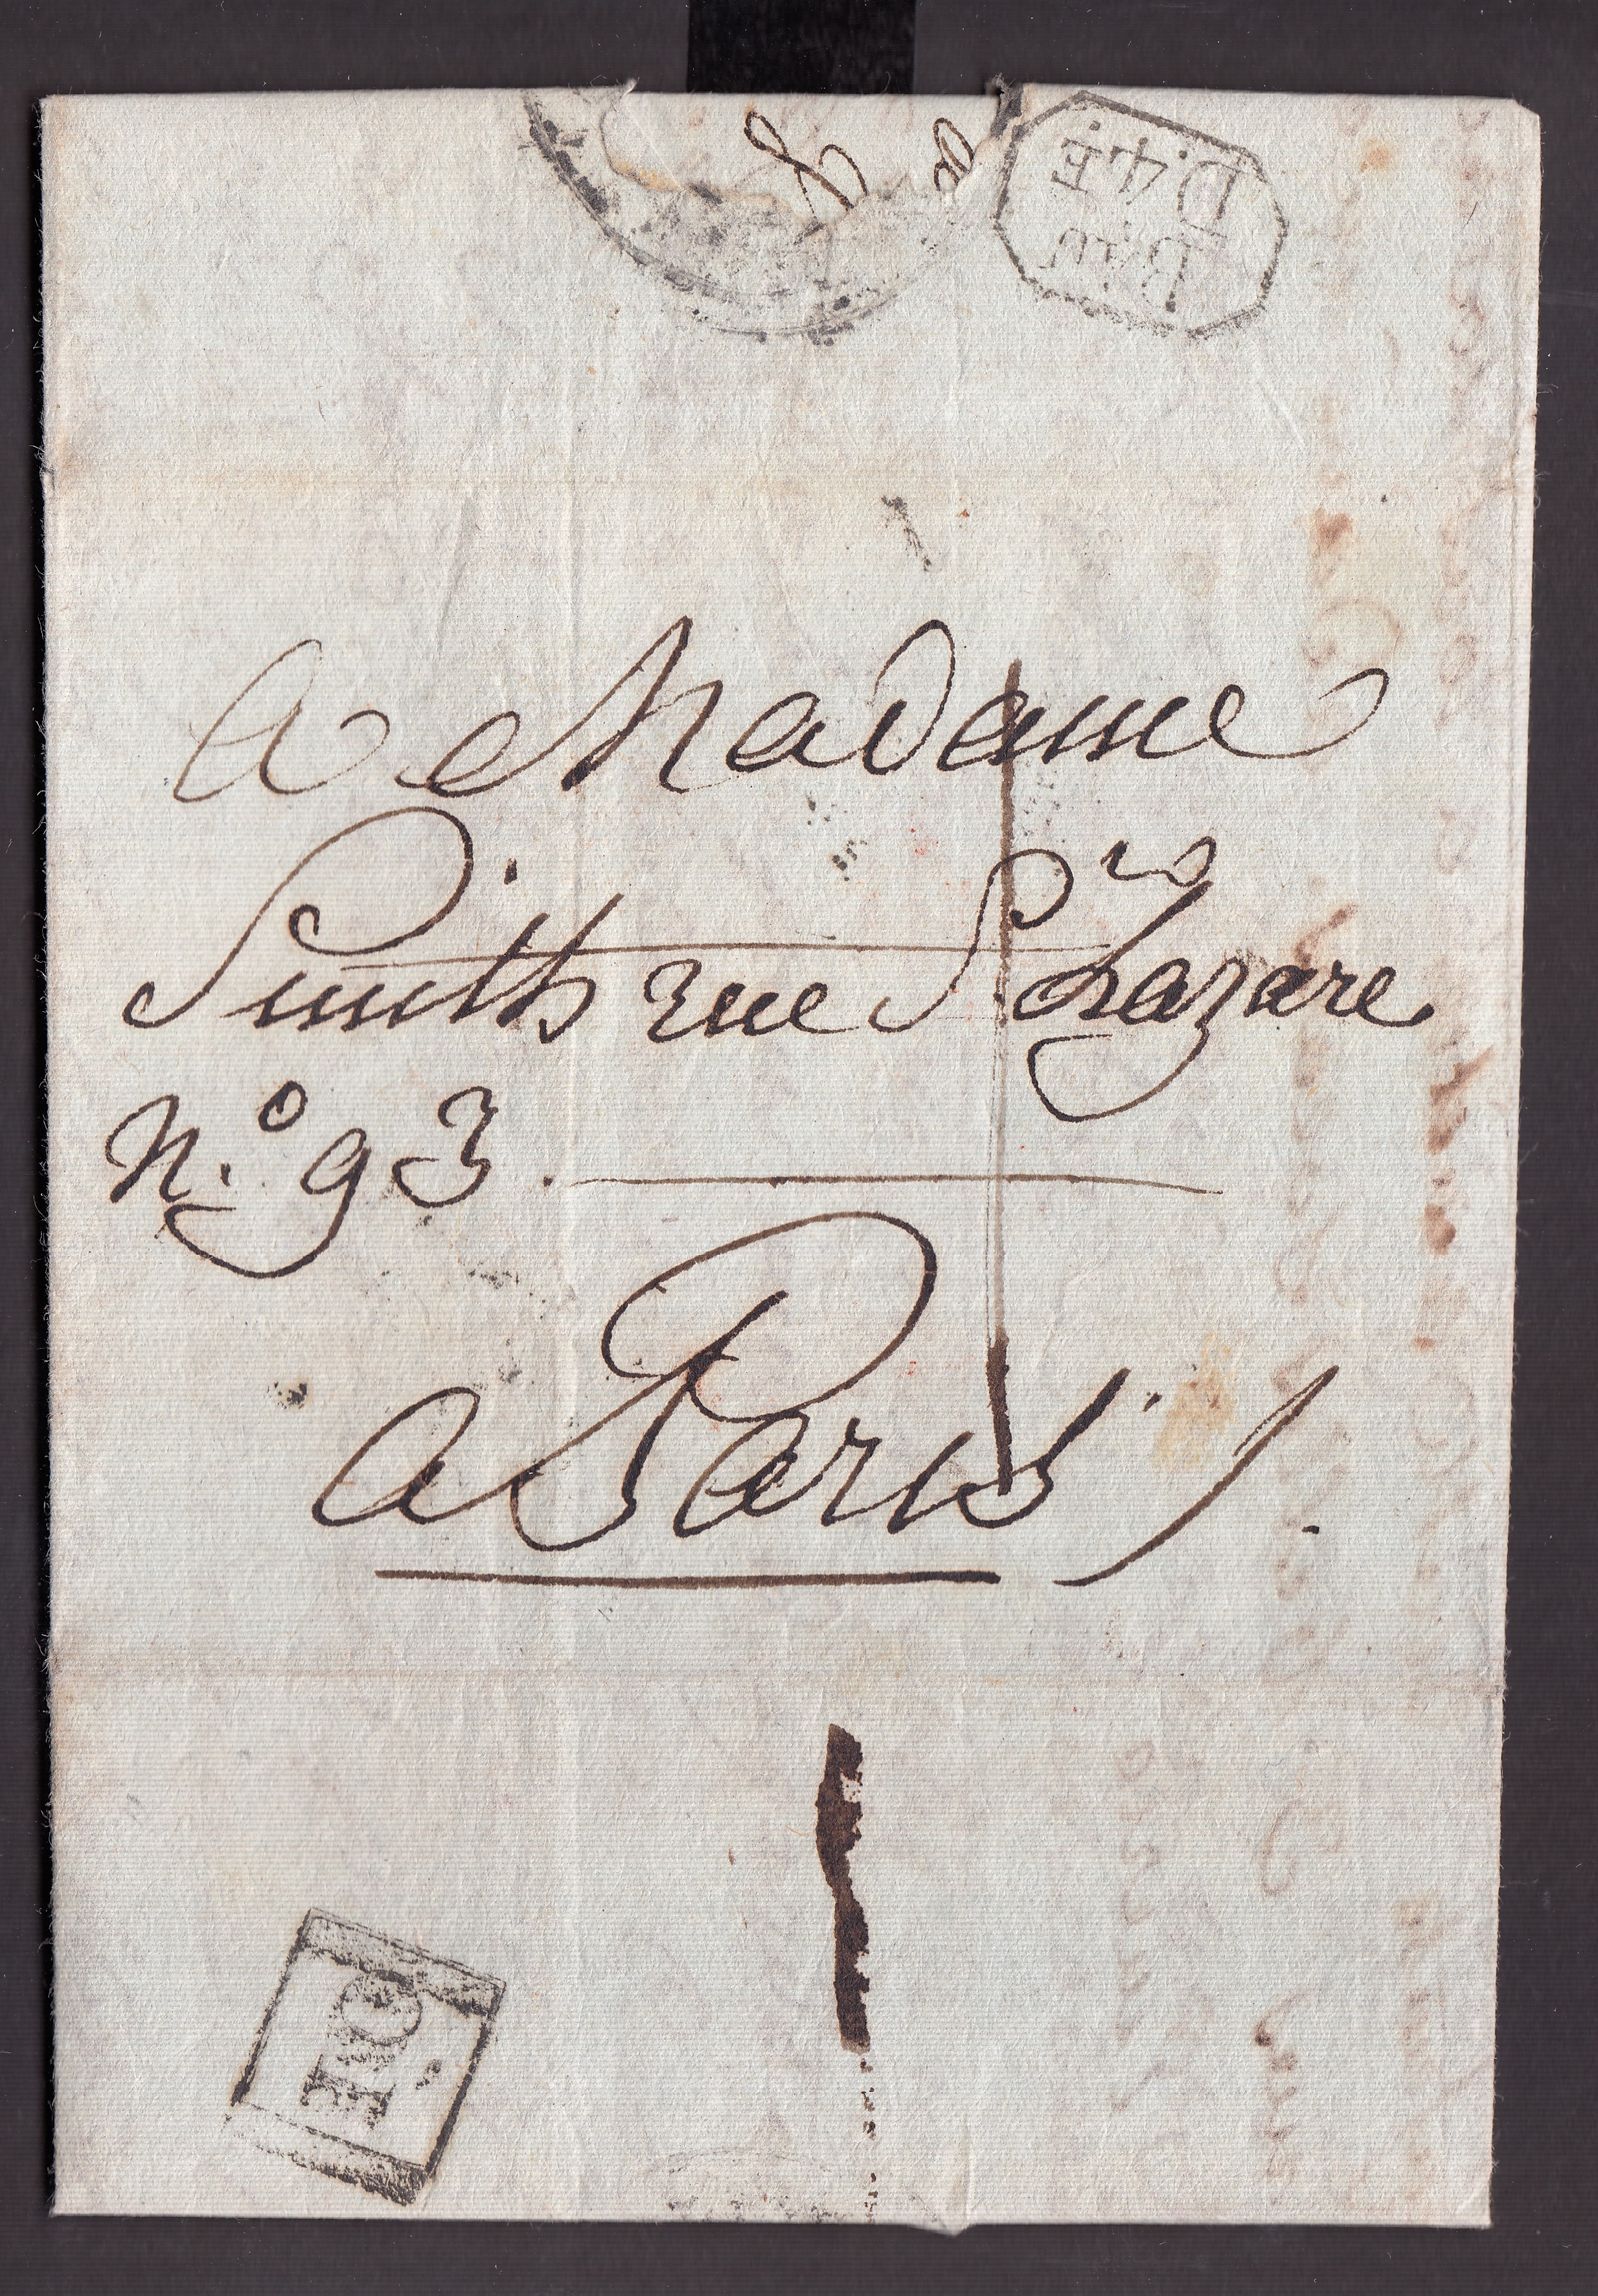 Bau
D.4E
A Madame
Smith rue St Lazare
N.º 93.
a Paris